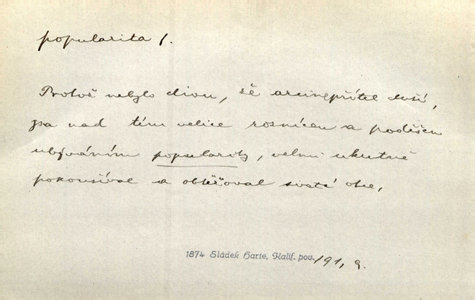 popularita f.
Protož nebylo divu, že arcinepřítel duší,
jsa nad tím velice roznícen a poděšen
ubýváním popularity, velmi ukrutně
pokoušíval a obtěžoval svaté otce,
1874 Sládek Harte, Kalif. pov. 191, 9.